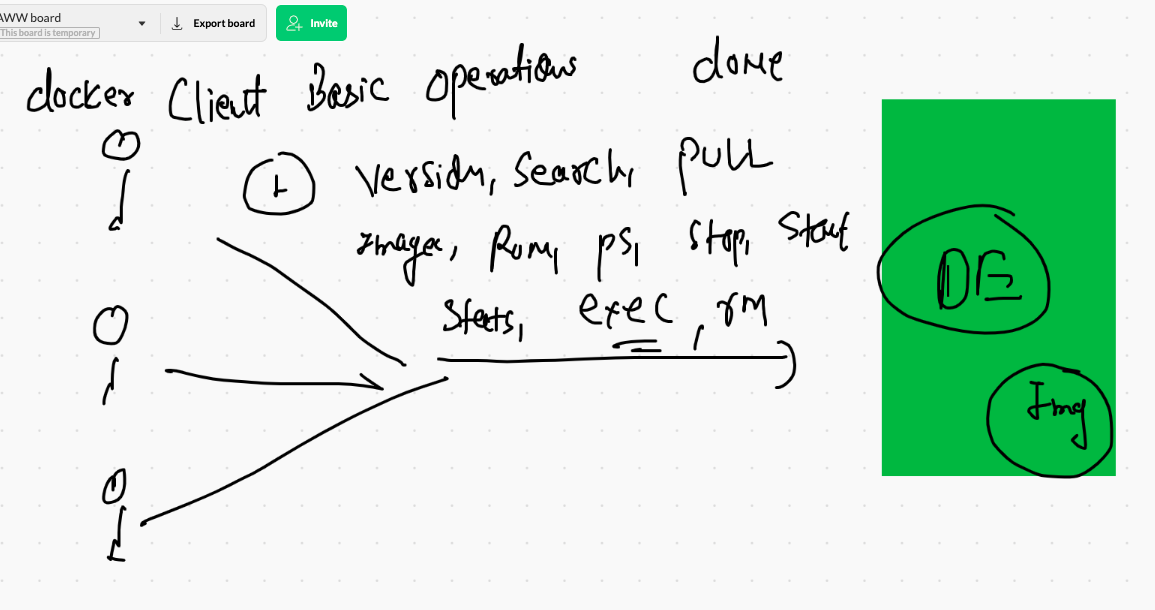 AWW board
This board is temporary
Export board
Invite
docker Client Basic Operations done
1 version, search, pull
images, Run, ps, stop, start
stats, exec, rm
DE
Img